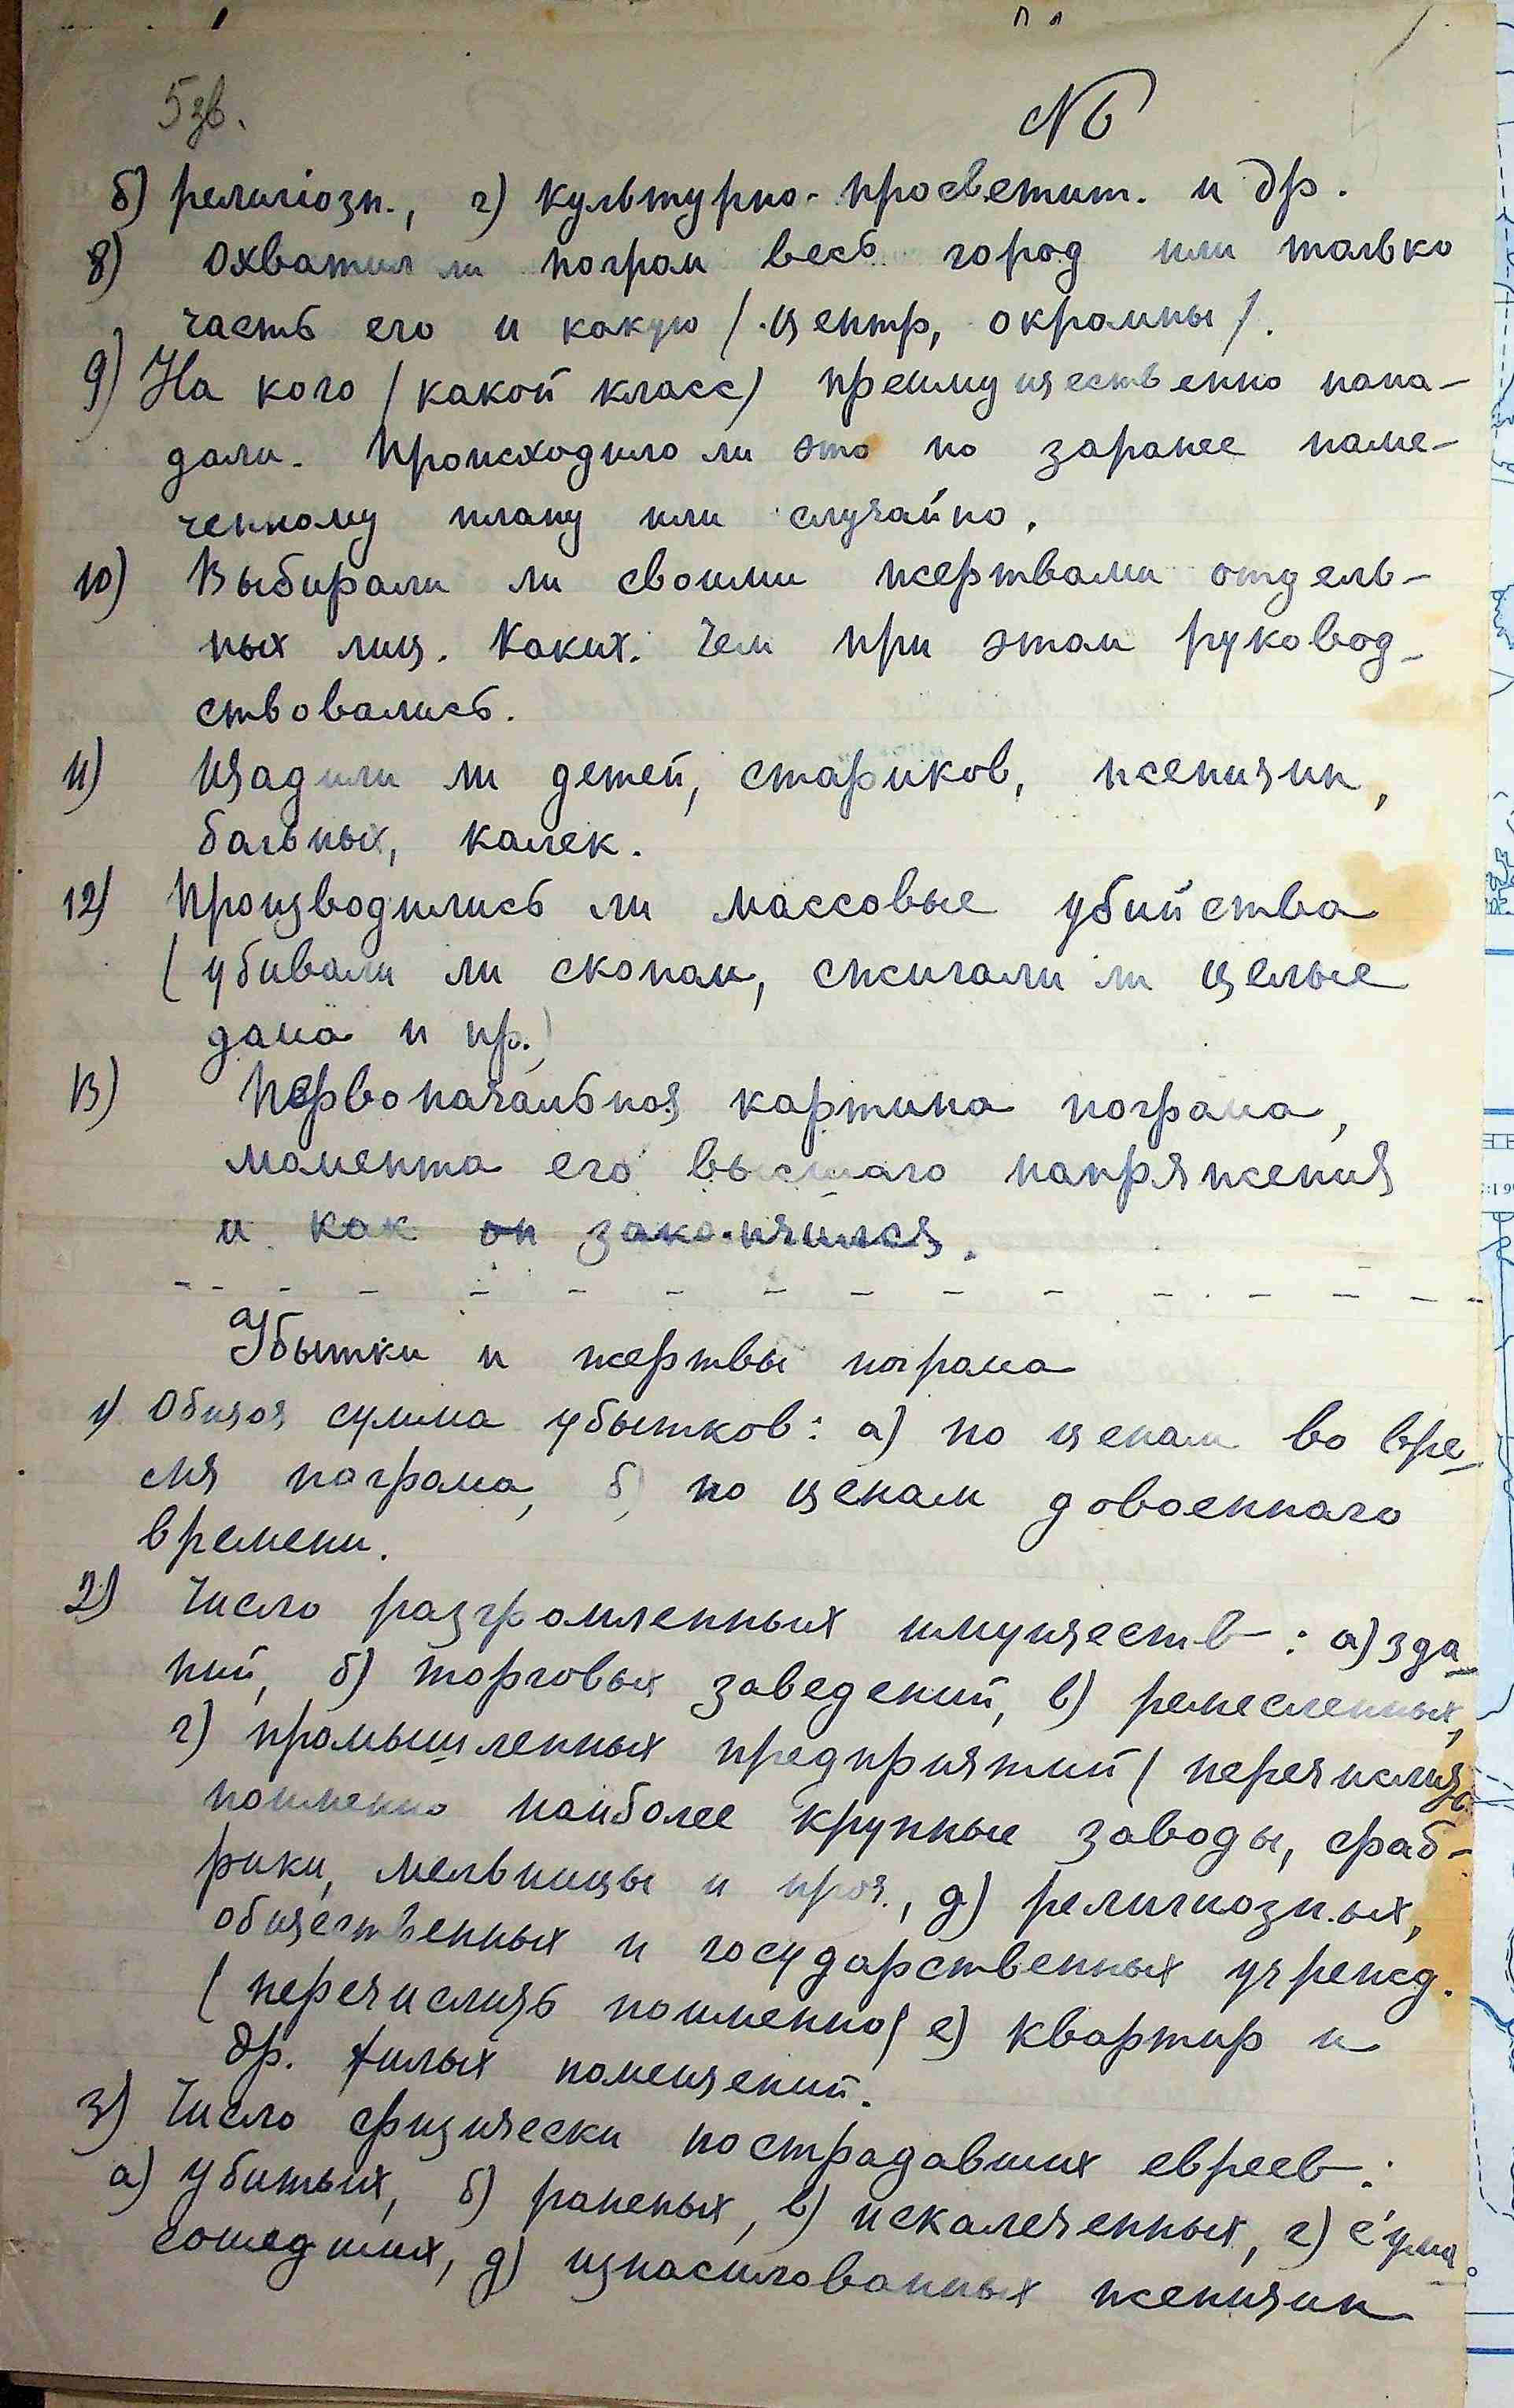 5 зв.
№ 6
б) религіозн., г) культурно-просветит. и др.
8) Охватил ли погром весь город или только
часть его и какую / центр, окромны /.
9) На кого / какой класс / преимущественно напа-
дали. Происходило ли это по заранее наме-
ченному плану или случайно.
10) Выбирали ли своими жертвами отдель-
ных лиц. Каких. Чем при этом руковод-
ствовались.
11) Щадили ли детей, стариков, женщин,
больных, калек.
12) Производились ли массовые убийства
( убивали ли скопом, сжигали ли целые
дома и пр.)
13) Первоначальная картина погрома,
момента его высшаго напряжения
и как он закончился.
Убытки и жертвы погрома
1) Общая сумма убытков: а) по ценам во вре-
мя погрома, б) по ценам довоеннаго
времени.
2) Число разгромленных имуществ: а) зда-
ний, б) торговых заведений, в) ремесленных,
г) промышленных предприятий ( перечислить
поименно наиболее крупные заводы, фаб-
рики, мельницы и проч., д) религиозных,
общественных и государственных учрежд.
( перечислить поименно ) е) квартир и
др. жилых помещений.
3) Число физически пострадавших евреев:
а) убитых, б) раненых, в) искалеченных, г) с'ума
сошедших, д) изнасилованных женщин